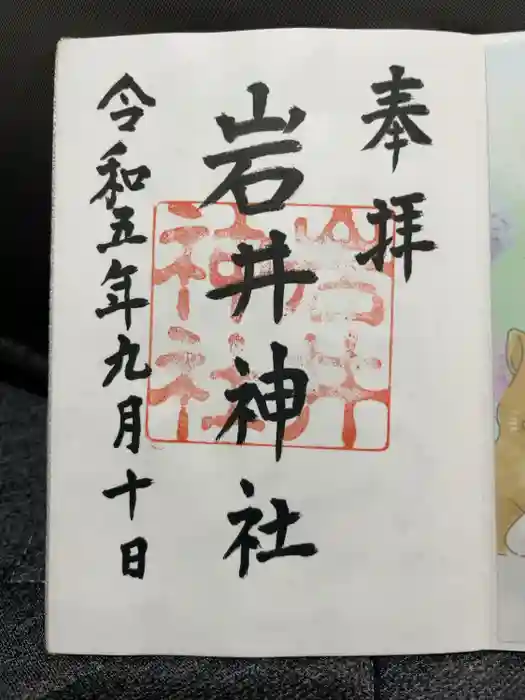 奉拝
岩井神社
令和五年九月十日
岩井
神社